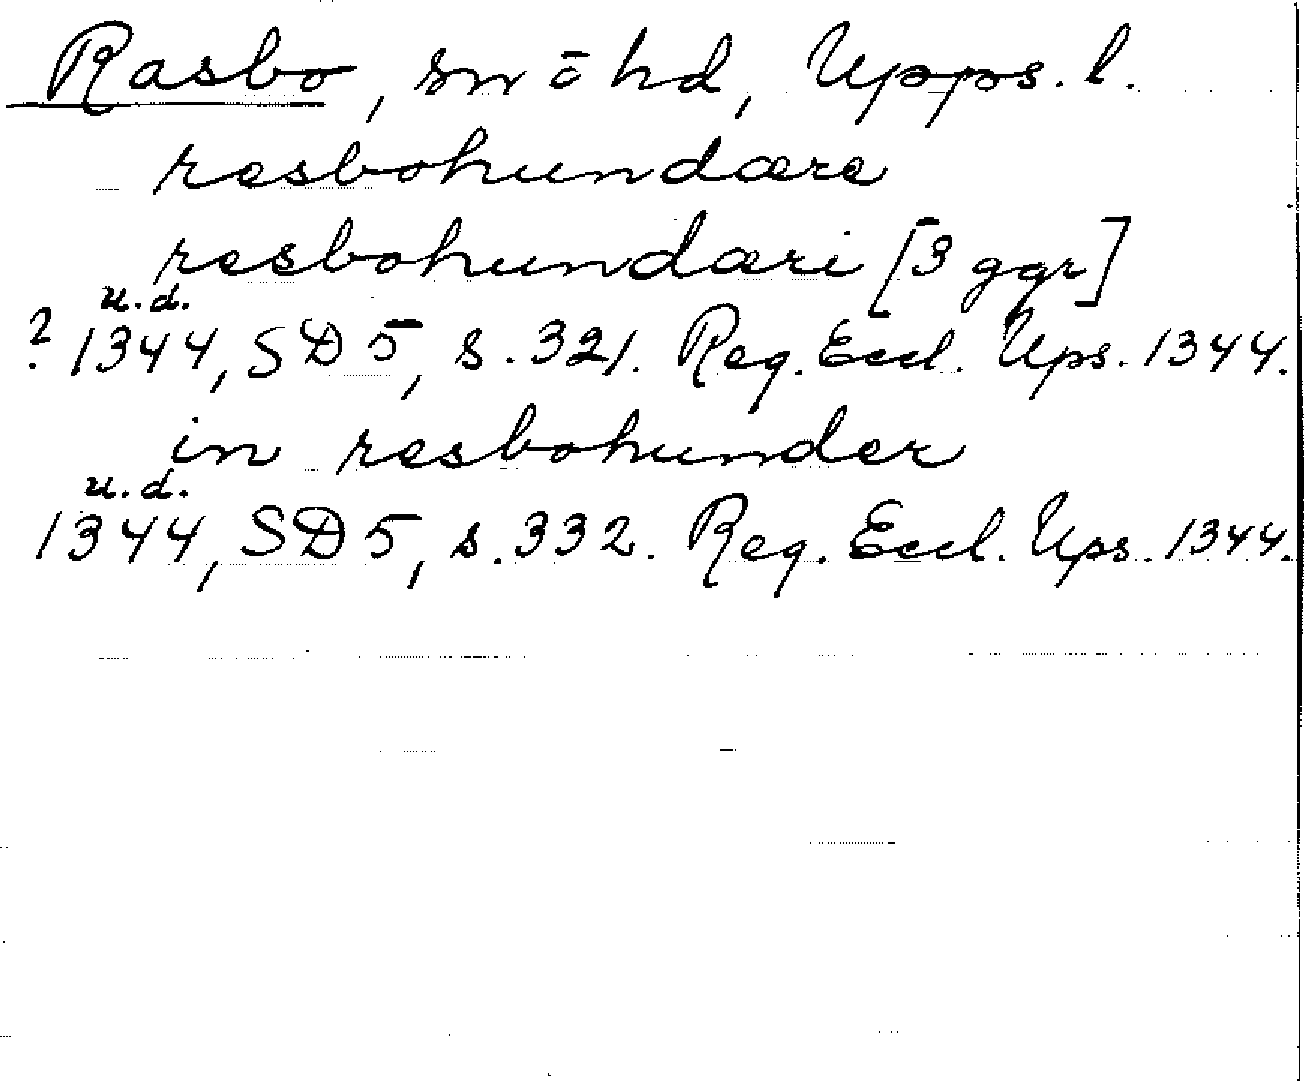 Rasbo, sn o hd, Upps. l.
resbohundære
resbohundæri [3 ggr]
u. d.
? 1344, SD 5, s. 321. Reg. Eccl. Ups. 1344.
in resbohunder
u. d.
1344, SD 5, s. 332. Reg. Eccl. Ups. 1344.